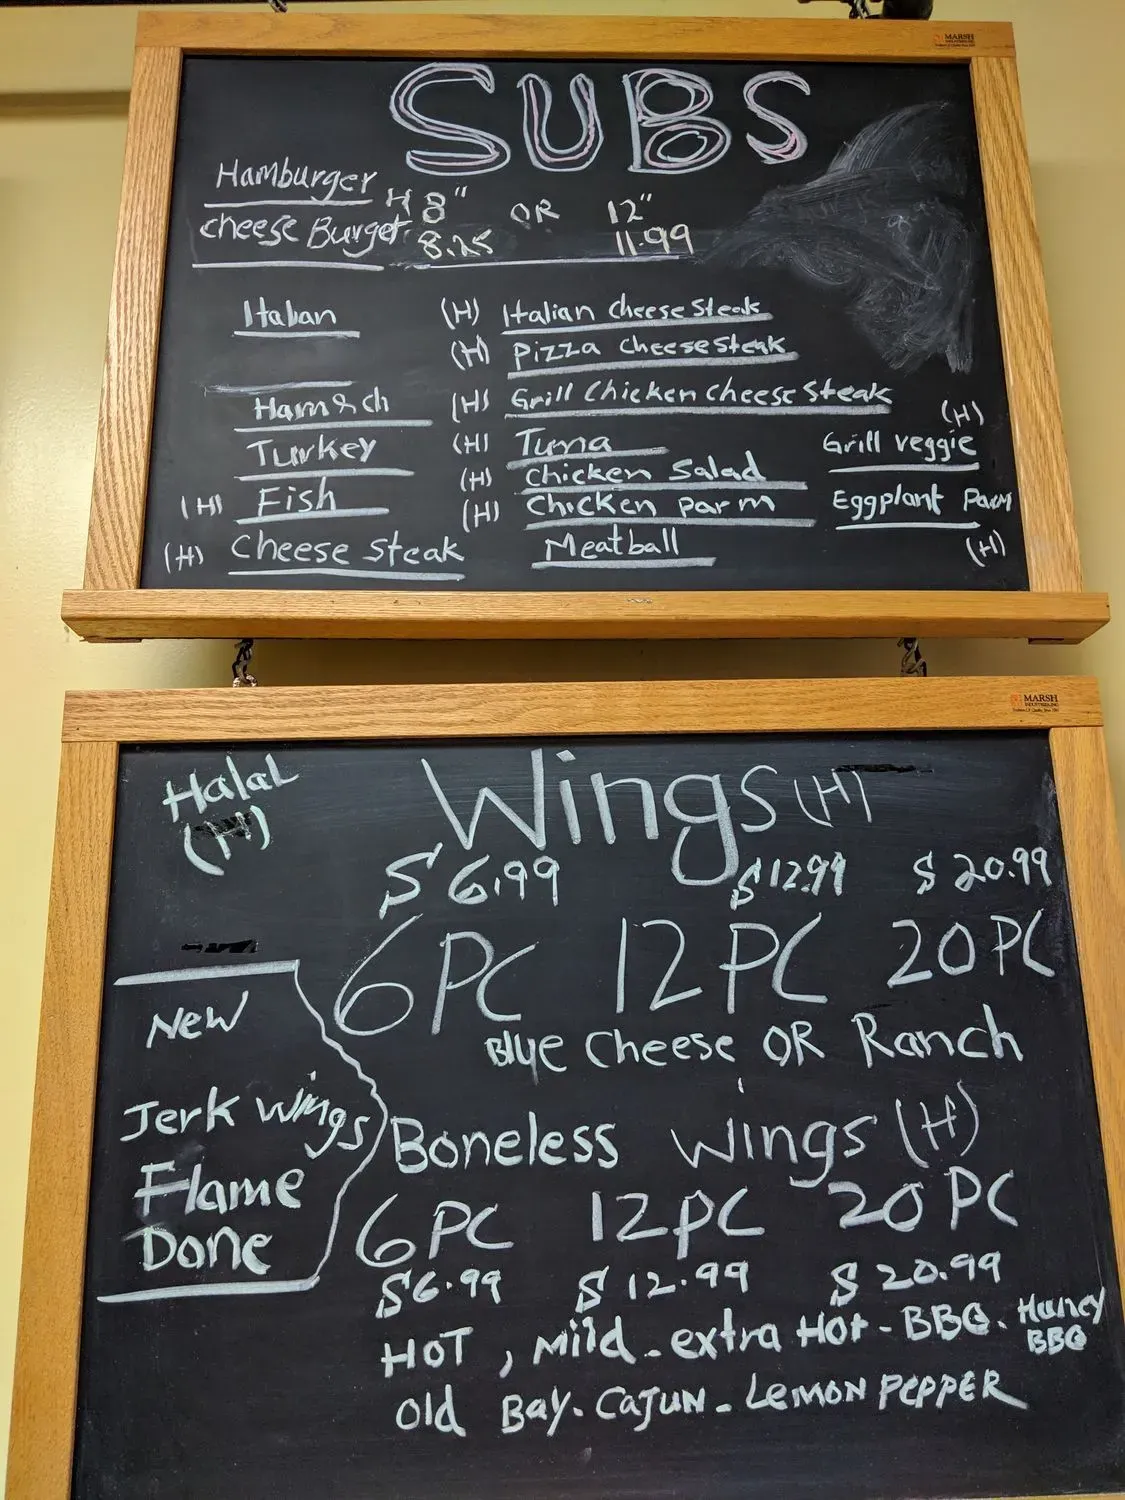 MARSH
SUBS
Hamburger
H 8" OR 12"
cheese Burger
8.25 11.99
Italian
(H) Italian cheese steak
(H) Pizza cheese steak
Ham & ch
(H) Grill Chicken cheese steak
Turkey
(H) Tuna
(H) Grill veggie
(H) Chicken Salad
(H) Fish
(H) Chicken parm
Eggplant Parm (H)
(H) Cheese steak
Meatball
MARSH
Halal
(H)
Wings (H)
$6.99 $12.99 $20.99
6 PC 12 PC 20 PC
Blue Cheese OR Ranch
New
Jerk wings
Flame
Done
Boneless wings (H)
6 PC 12 PC 20 PC
$6.99 $12.99 $20.99
HOT, Mild - extra Hot - BBQ. Huney BBQ
Old Bay. CAJUN - LEMON PEPPER